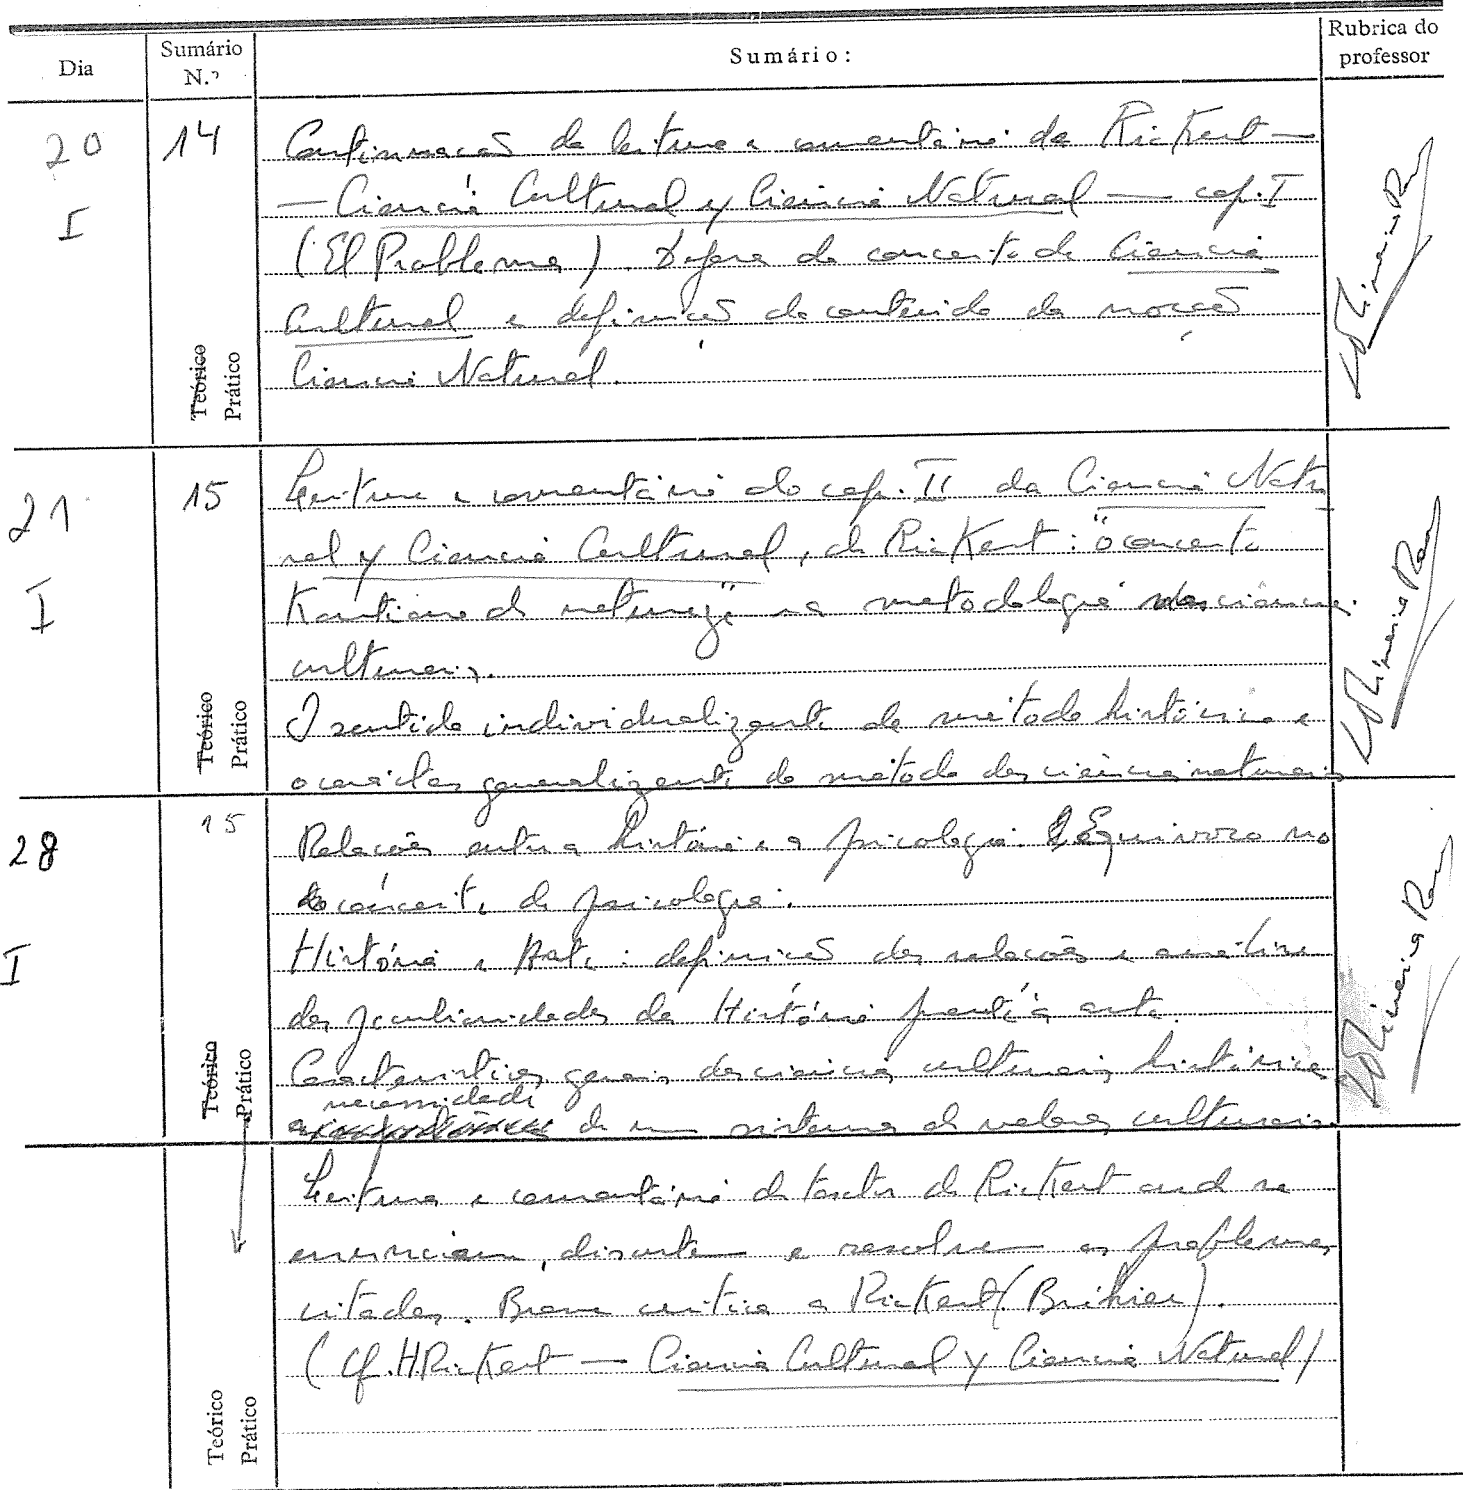 Dia
Sumário N.º
Sumário:
Rubrica do professor
20
I
14
Teórico
Prático
Continuação da leitura e comentário de Rickert —
— Ciencia Cultural y Ciencia Natural — cap. I
(El Problema). Defesa do conceito de Ciencia
Cultural e definição do conteúdo da noção
Ciencia Natural.
21
I
15
Teórico
Prático
Leitura e comentário do cap. II da Ciencia Natu
ral y Ciencia Cultural, de Rickert: "o conceito
Kantiano de natureza" na metodologia das ciencias
culturais.
O sentido individualizante do método histórico e
o caracter generalizante do método das ciências naturais
28
I
15
Teórico
Prático
Relações entre a história e a psicologia. Equívoco no
conceito de psicologia.
História e Arte: definição das relações e análise
das peculiaridades da História frente à arte.
Características gerais das ciencias culturais históricas
necessidade
de um sistema de valores culturais.
Teórico
Prático
Leitura e comentário de textos de Rickert onde se
enunciam, discutem e resolvem os problemas
citados. Breve critica a Rickert (Bréhier).
(Cf. H Rickert — Ciencia Cultural y Ciencia Natural)